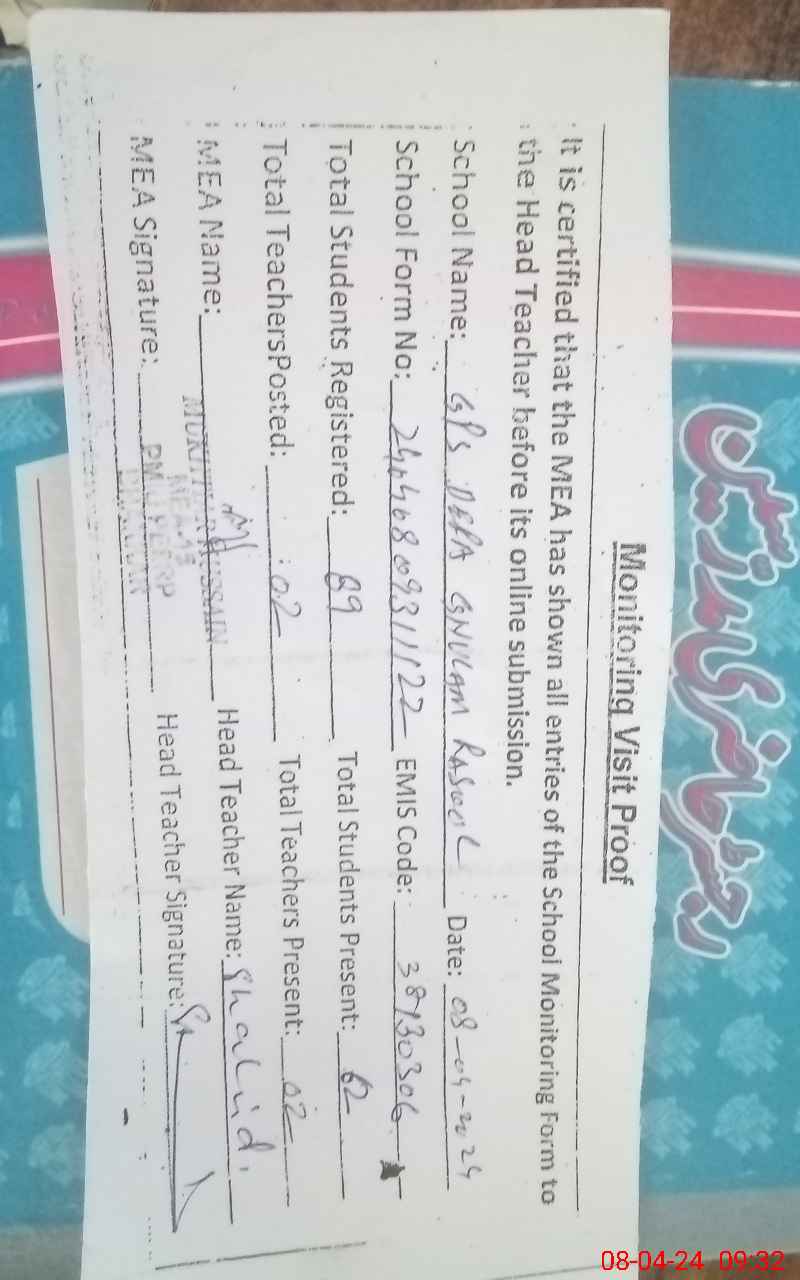 سکول رجسٹر حاضری مدرسین
Monitoring Visit Proof
It is certified that the MEA has shown all entries of the School Monitoring Form to
the Head Teacher before its online submission.
School Name: GPS DERA GHULAM RASOOL Date: 08-04-2024
School Form No: EMIS Code: 38130306
Total Students Registered: 89 Total Students Present: 62
Total Teachers Posted: 02 Total Teachers Present: 02
MEA Name: MUKHTIAR HUSSAIN Head Teacher Name: Khalid
MEA Signature: Head Teacher Signature:
08-04-24 09:32